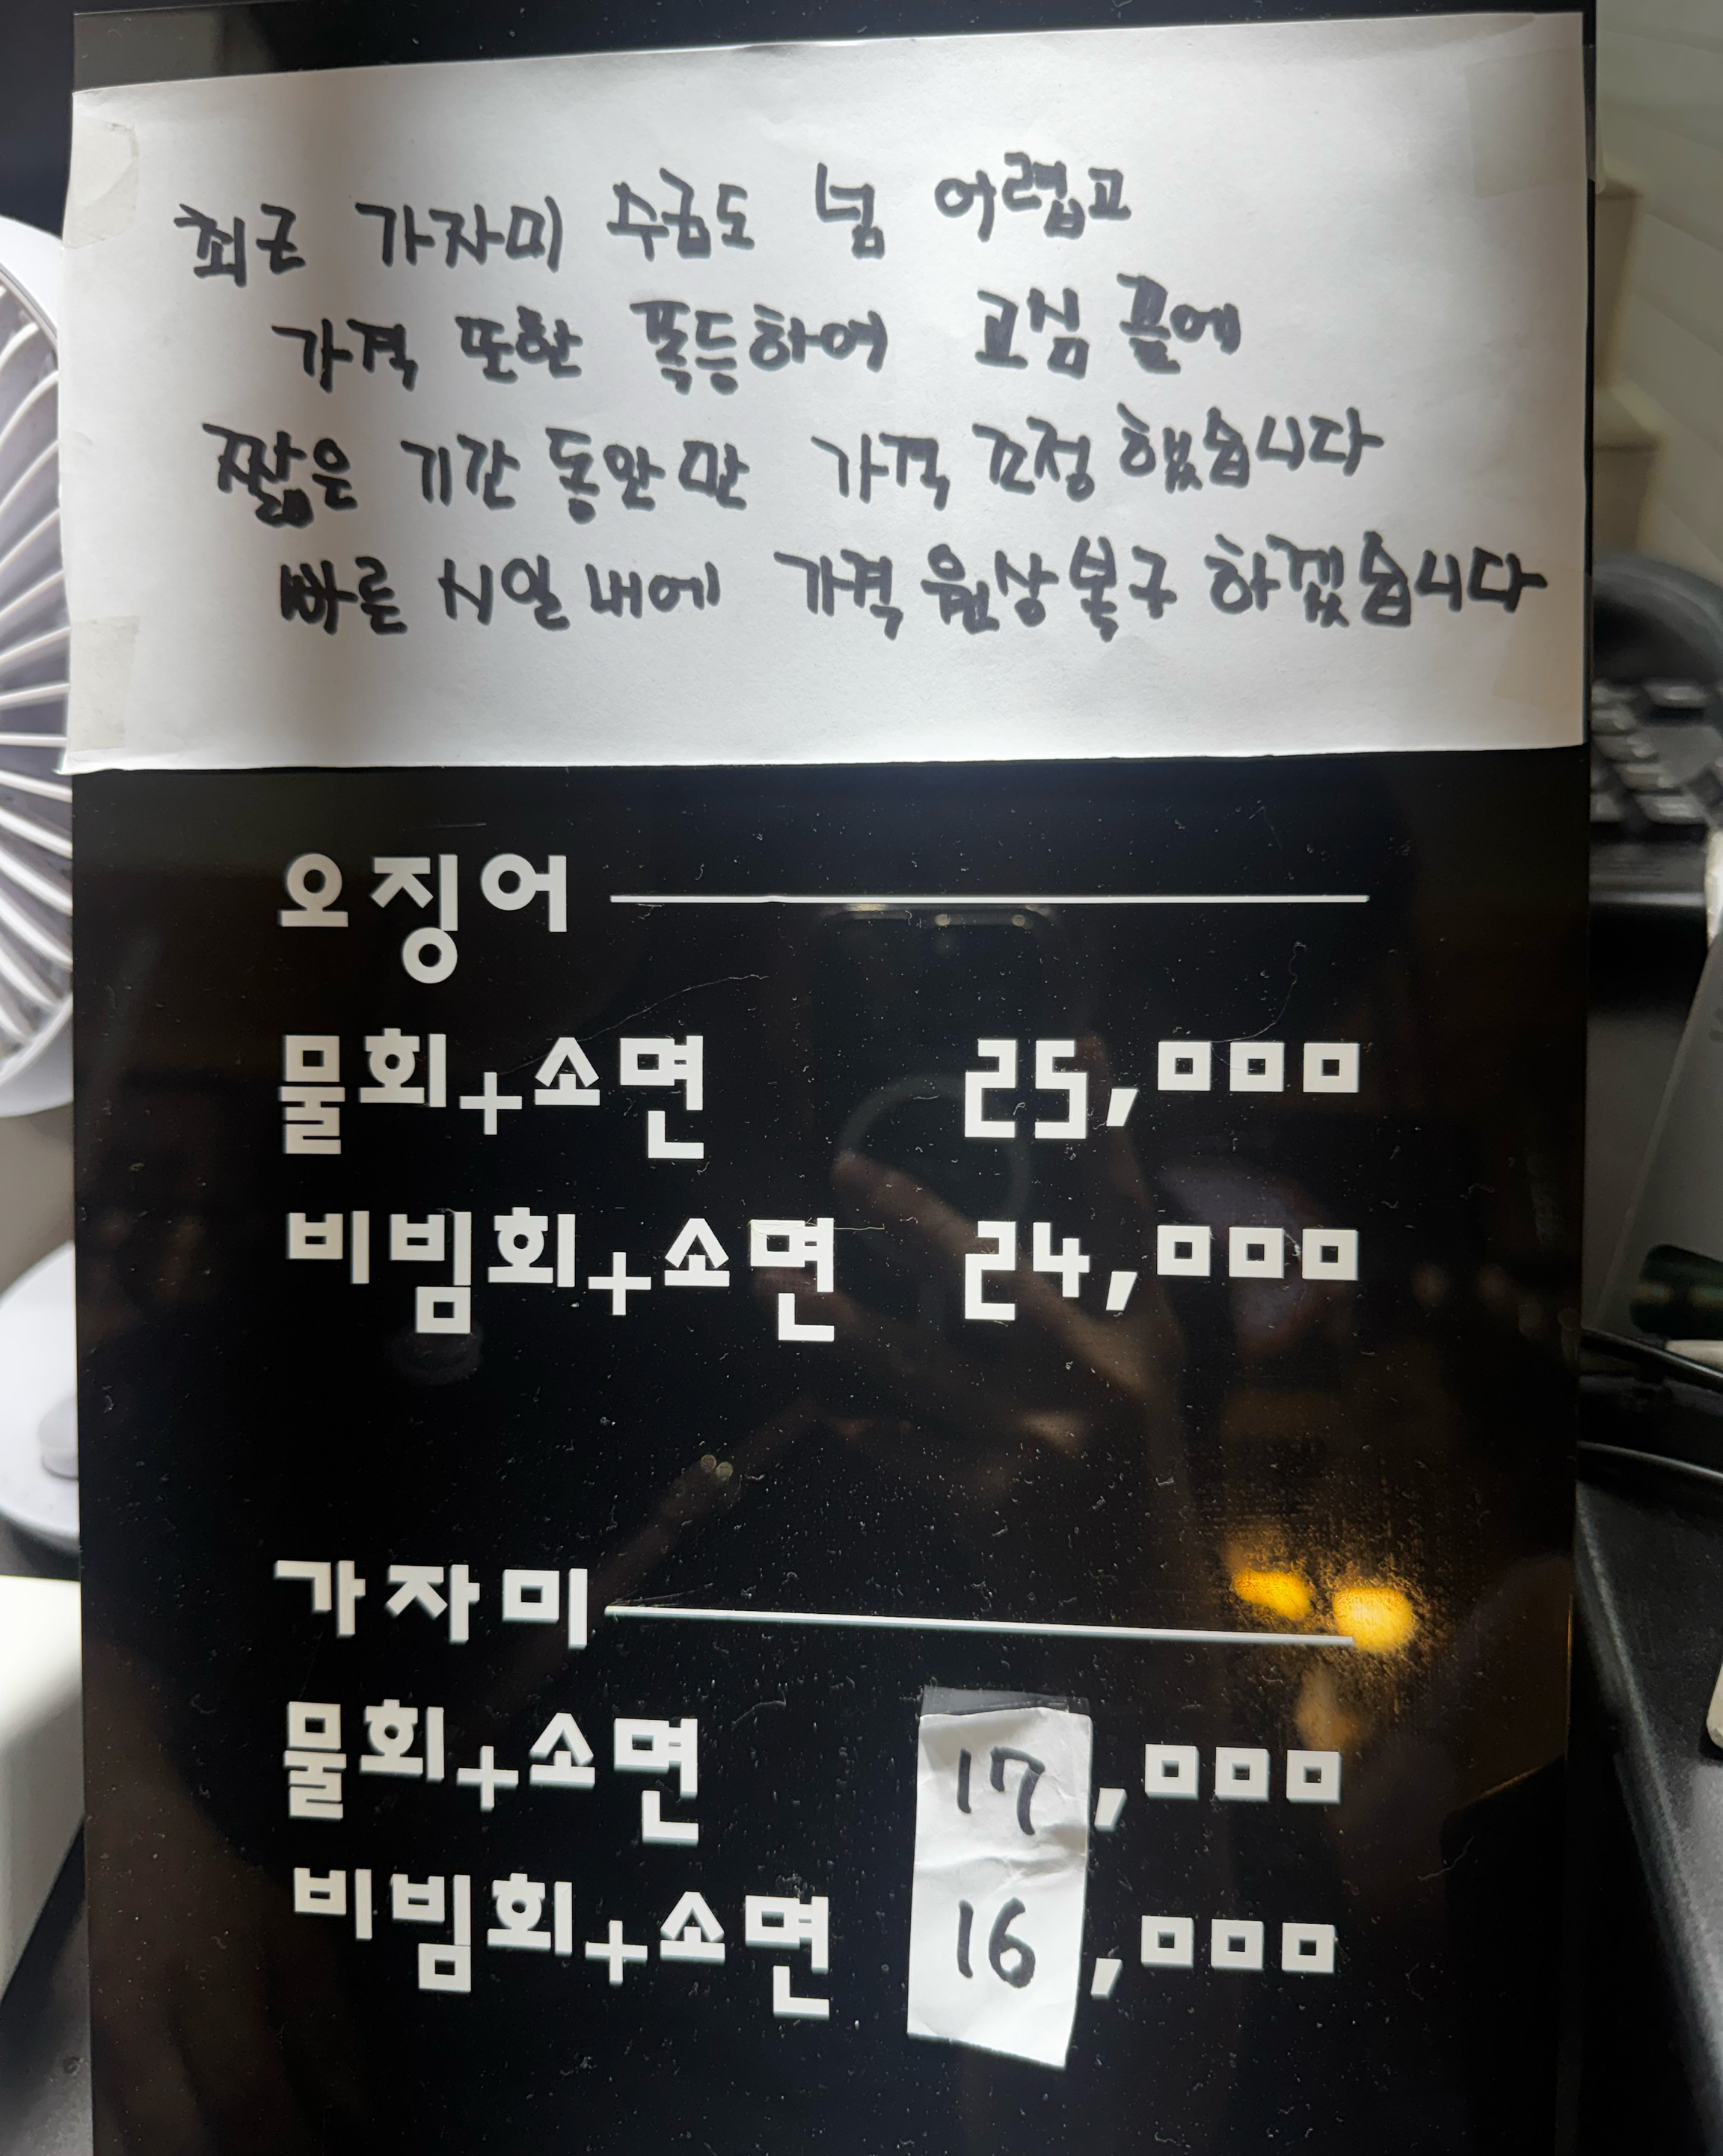 최근 가자미 수급도 넘 어렵고
가격 또한 폭등하여 고심 끝에
짧은 기간 동안만 가격 조정 했습니다
빠른 시일 내에 가격 원상복구 하겠습니다
오징어
물회+소면 25,000
비빔회+소면 24,000
가자미
물회+소면 17,000
비빔회+소면 16,000